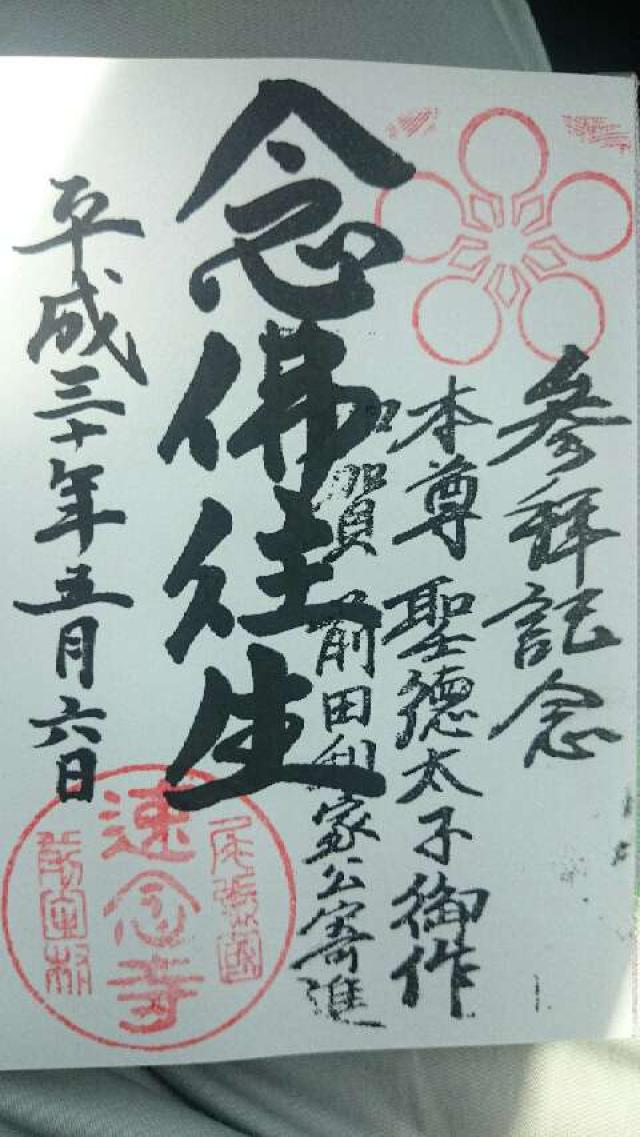 參拜記念
本尊 聖德太子御作
加賀 前田利家公寄進
念佛往生
平成三十年五月六日
尾張國
速念寺
前田村